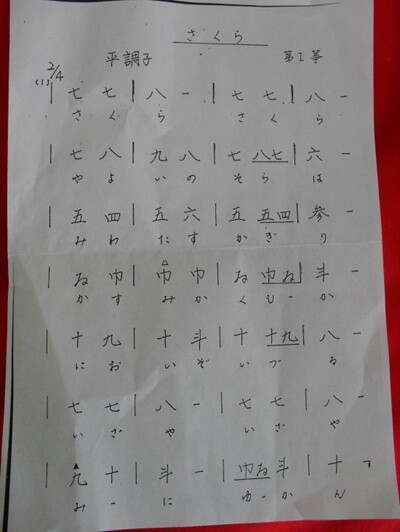 さくら
平調子 第I箏
2/4
(1) | 七 七 | 八 ー | 七 七 | 八 ー
さ く ら さ く ら
| 七 八 | 九 八 | 七 八七 | 六 ー
や よ い の そ ら は
| 五 四 | 五 六 | 五 五四 | 参 ー
み わ た す か ぎ り
| ゐ 巾 | △巾 巾 | ゐ 巾ゐ | 斗 ー
か す み か く もー か
| 十 九 | 十 斗 | 十 十九 | 八 ー
に お い ぞ い づ る
| 七 七 | 八 ー | 七 七 | 八 ー
い ざ や い ざ や
| ▲九 十 | 斗 ー | 巾ゐ 斗 | 十
み ー に ゆー か ん